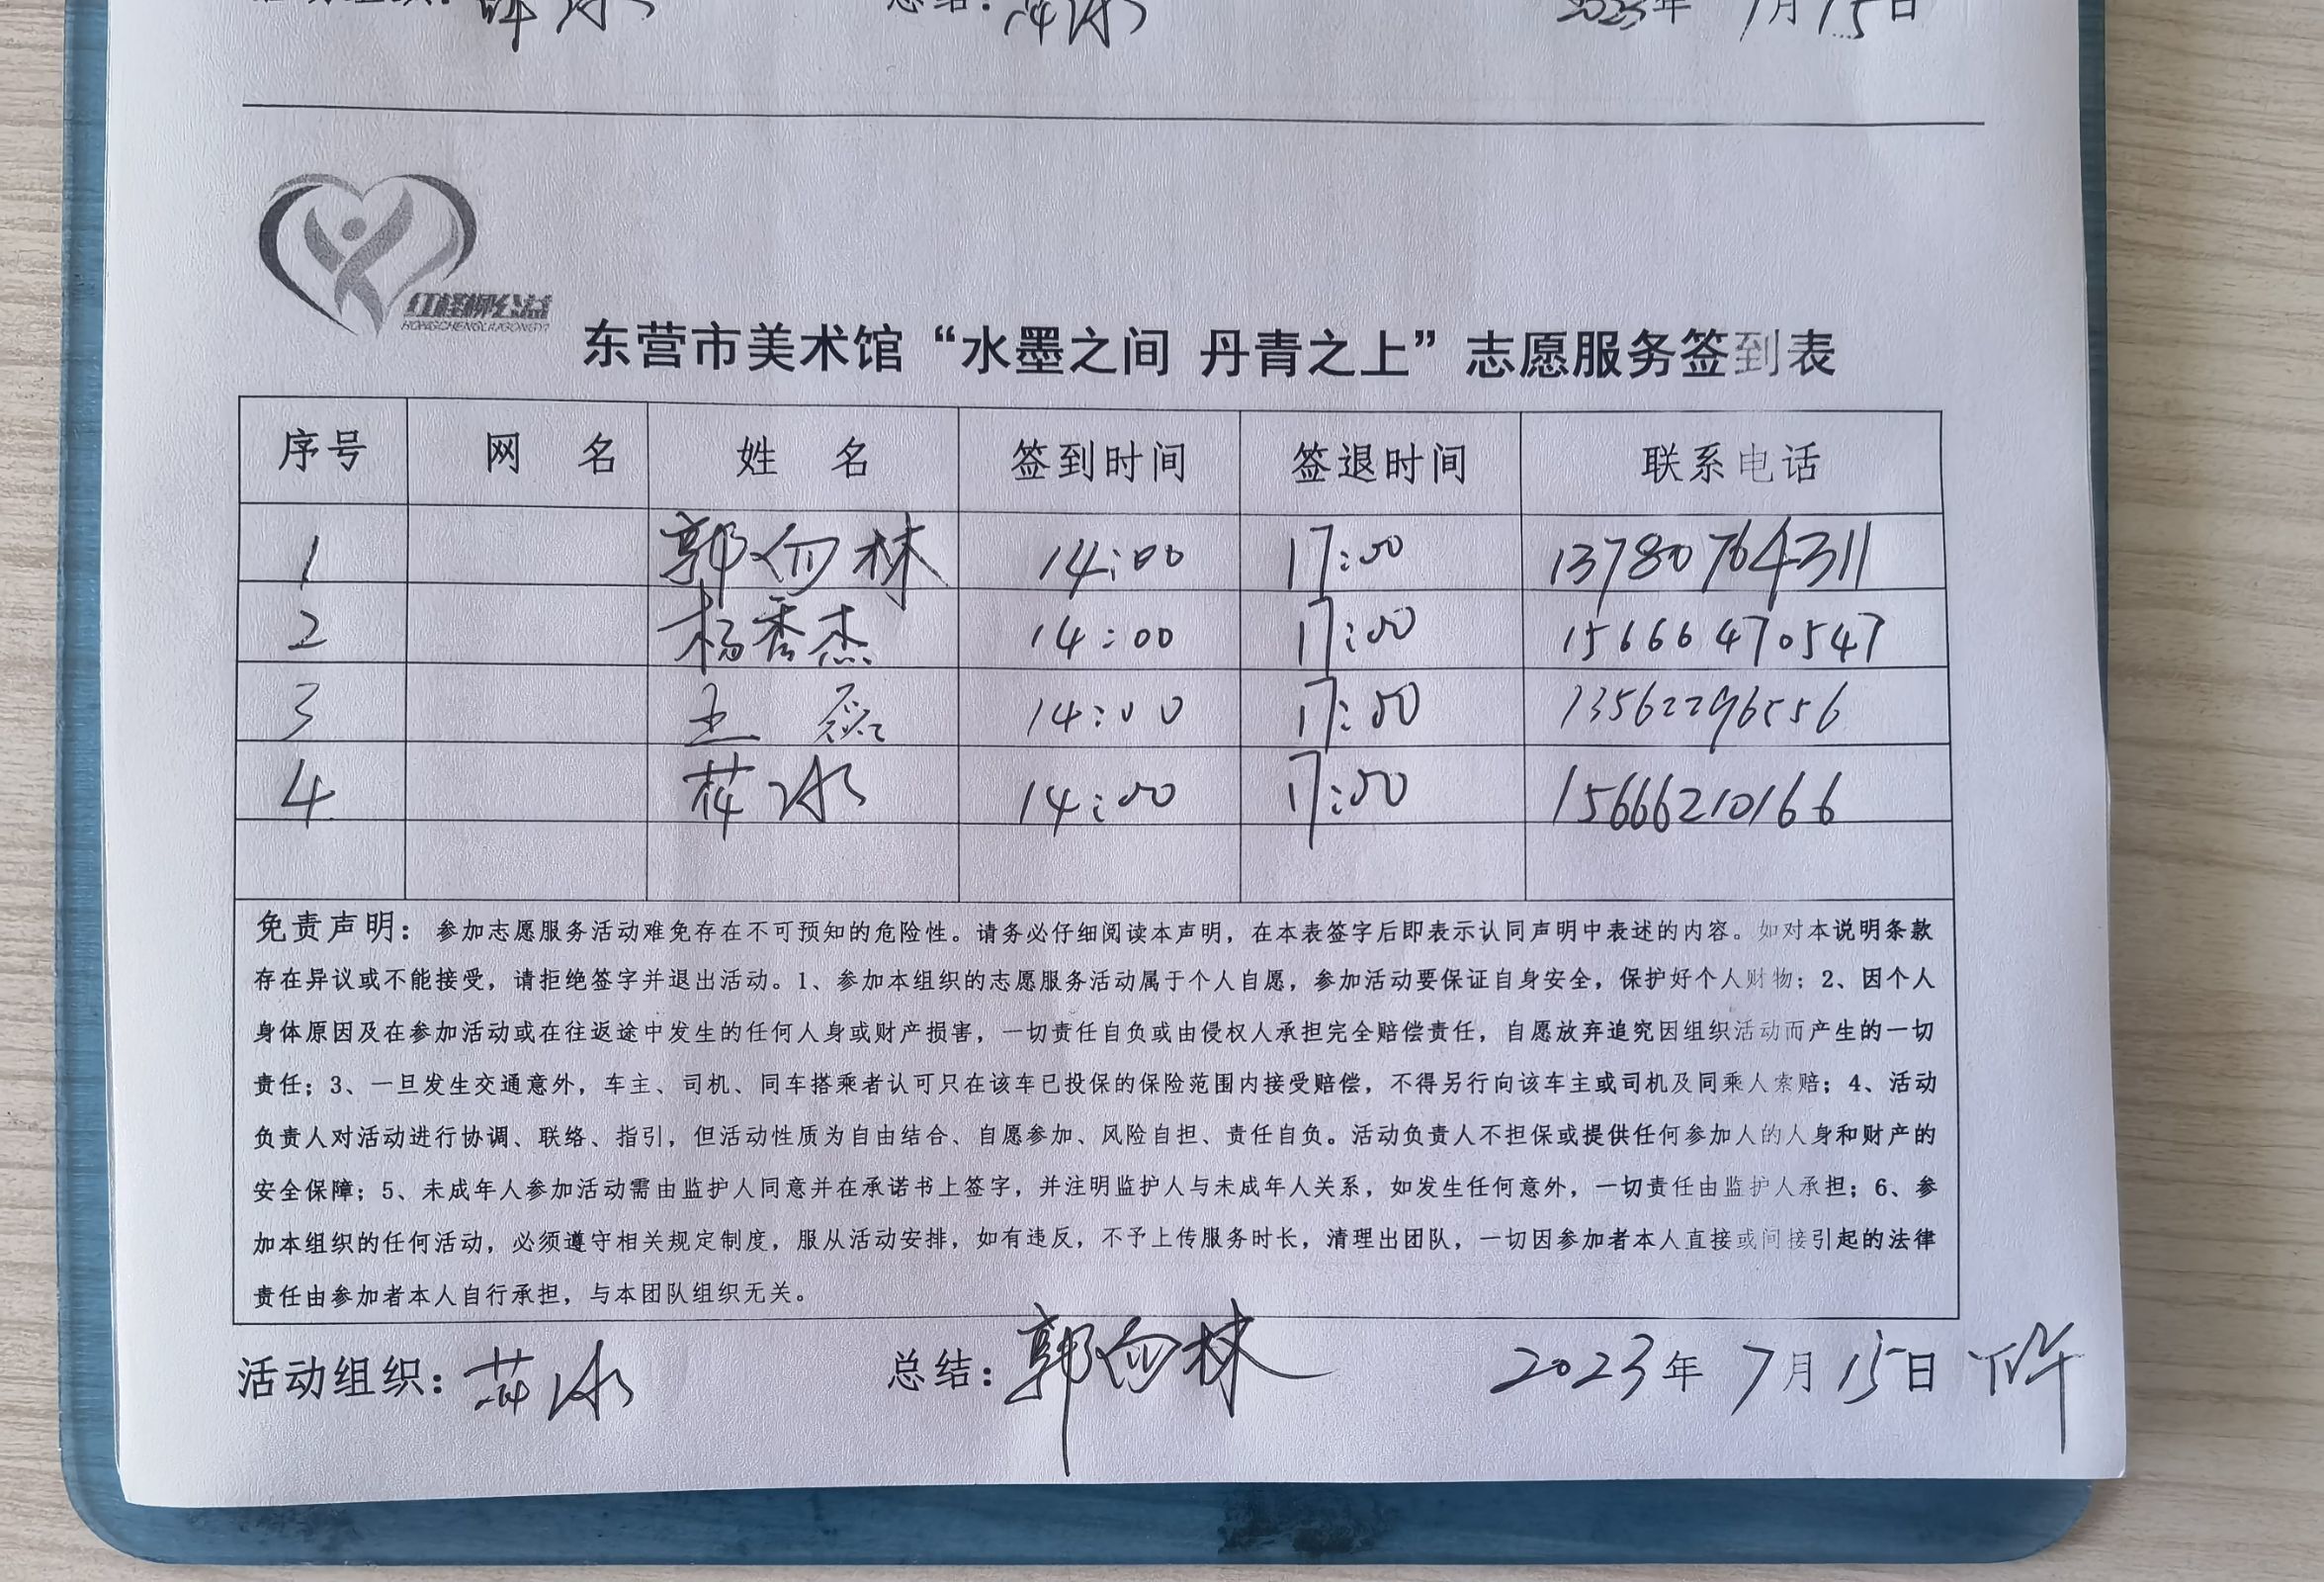 2023年 7月15日
红柽柳公益
HONGCHENGLIUGONGYI
东营市美术馆“水墨之间 丹青之上”志愿服务签到表
序号 网 名 姓 名 签到时间 签退时间 联系电话
1 郭 林 14:00 17:00 13780764311
2 杨秀杰 14:00 17:00 15666470547
3 王 磊 14:00 17:00 13562296556
4 冰 14:00 17:00 15666210166
免责声明：参加志愿服务活动难免存在不可预知的危险性。请务必仔细阅读本声明，在本表签字后即表示认同声明中表述的内容。如对本说明条款
存在异议或不能接受，请拒绝签字并退出活动。1、参加本组织的志愿服务活动属于个人自愿，参加活动要保证自身安全，保护好个人财物；2、因个人
身体原因及在参加活动或在往返途中发生的任何人身或财产损害，一切责任自负或由侵权人承担完全赔偿责任，自愿放弃追究因组织活动而产生的一切
责任；3、一旦发生交通意外，车主、司机、同车搭乘者认可只在该车已投保的保险范围内接受赔偿，不得另行向该车主或司机及同乘人索赔；4、活动
负责人对活动进行协调、联络、指引，但活动性质为自由结合、自愿参加、风险自担、责任自负。活动负责人不担保或提供任何参加人的人身和财产的
安全保障；5、未成年人参加活动需由监护人同意并在承诺书上签字，并注明监护人与未成年人关系，如发生任何意外，一切责任由监护人承担；6、参
加本组织的任何活动，必须遵守相关规定制度，服从活动安排，如有违反，不予上传服务时长，清理出团队，一切因参加者本人直接或间接引起的法律
责任由参加者本人自行承担，与本团队组织无关。
活动组织： 冰 总结：郭 林 2023年 7月15日 下午